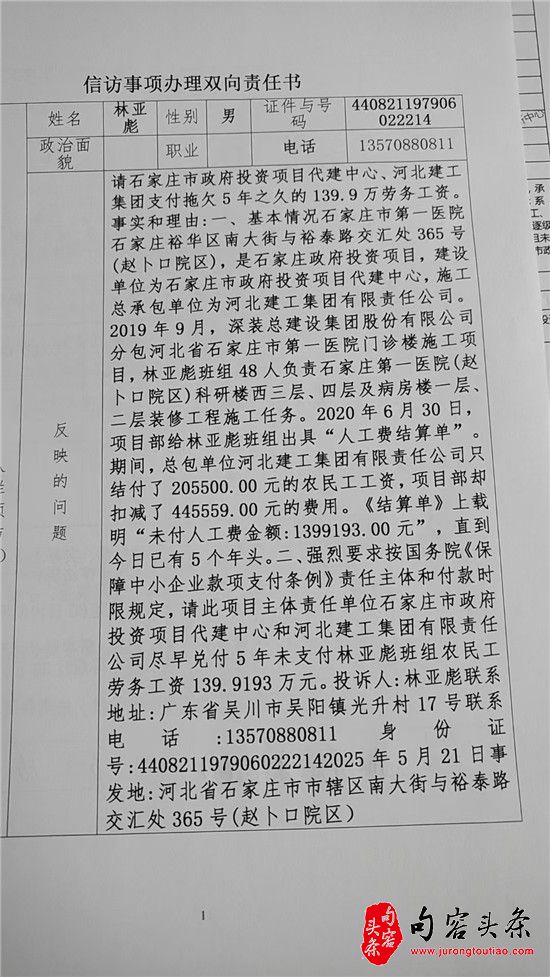 信访事项办理双向责任书
姓名 林亚彪 性别 男 证件与号码 440821197906022214
政治面貌 职业 电话 13570880811
反映的问题
请石家庄市政府投资项目代建中心、河北建工
集团支付拖欠5年之久的139.9万劳务工资。
事实和理由:一、基本情况石家庄市第一医院
石家庄裕华区南大街与裕泰路交汇处365号
(赵卜口院区),是石家庄政府投资项目,建设
单位为石家庄市政府投资项目代建中心,施工
总承包单位为河北建工集团有限责任公司。
2019年9月,深装总建设集团股份有限公司
分包河北省石家庄市第一医院门诊楼施工项
目,林亚彪班组48人负责石家庄第一医院(赵
卜口院区)科研楼西三层、四层及病房楼一层、
二层装修工程施工任务。2020年6月30日,
项目部给林亚彪班组出具“人工费结算单”。
期间,总包单位河北建工集团有限责任公司只
结付了205500.00元的农民工工资,项目部却
扣减了445559.00元的费用。《结算单》上载
明“未付人工费金额:1399193.00元”,直到
今日已有5个年头。二、强烈要求按国务院《保
障中小企业款项支付条例》责任主体和付款时
限规定,请此项目主体责任单位石家庄市政府
投资项目代建中心和河北建工集团有限责任
公司尽早兑付5年未支付林亚彪班组农民工
劳务工资139.9193万元。投诉人:林亚彪联系
地址:广东省吴川市吴阳镇光升村17号联系
电话:13570880811 身份证
号:4408211979060222142025年5月21日事
发地:河北省石家庄市市辖区南大街与裕泰路
交汇处365号(赵卜口院区)
1
句容头条
句容头条
www.jurongtoutiao.com